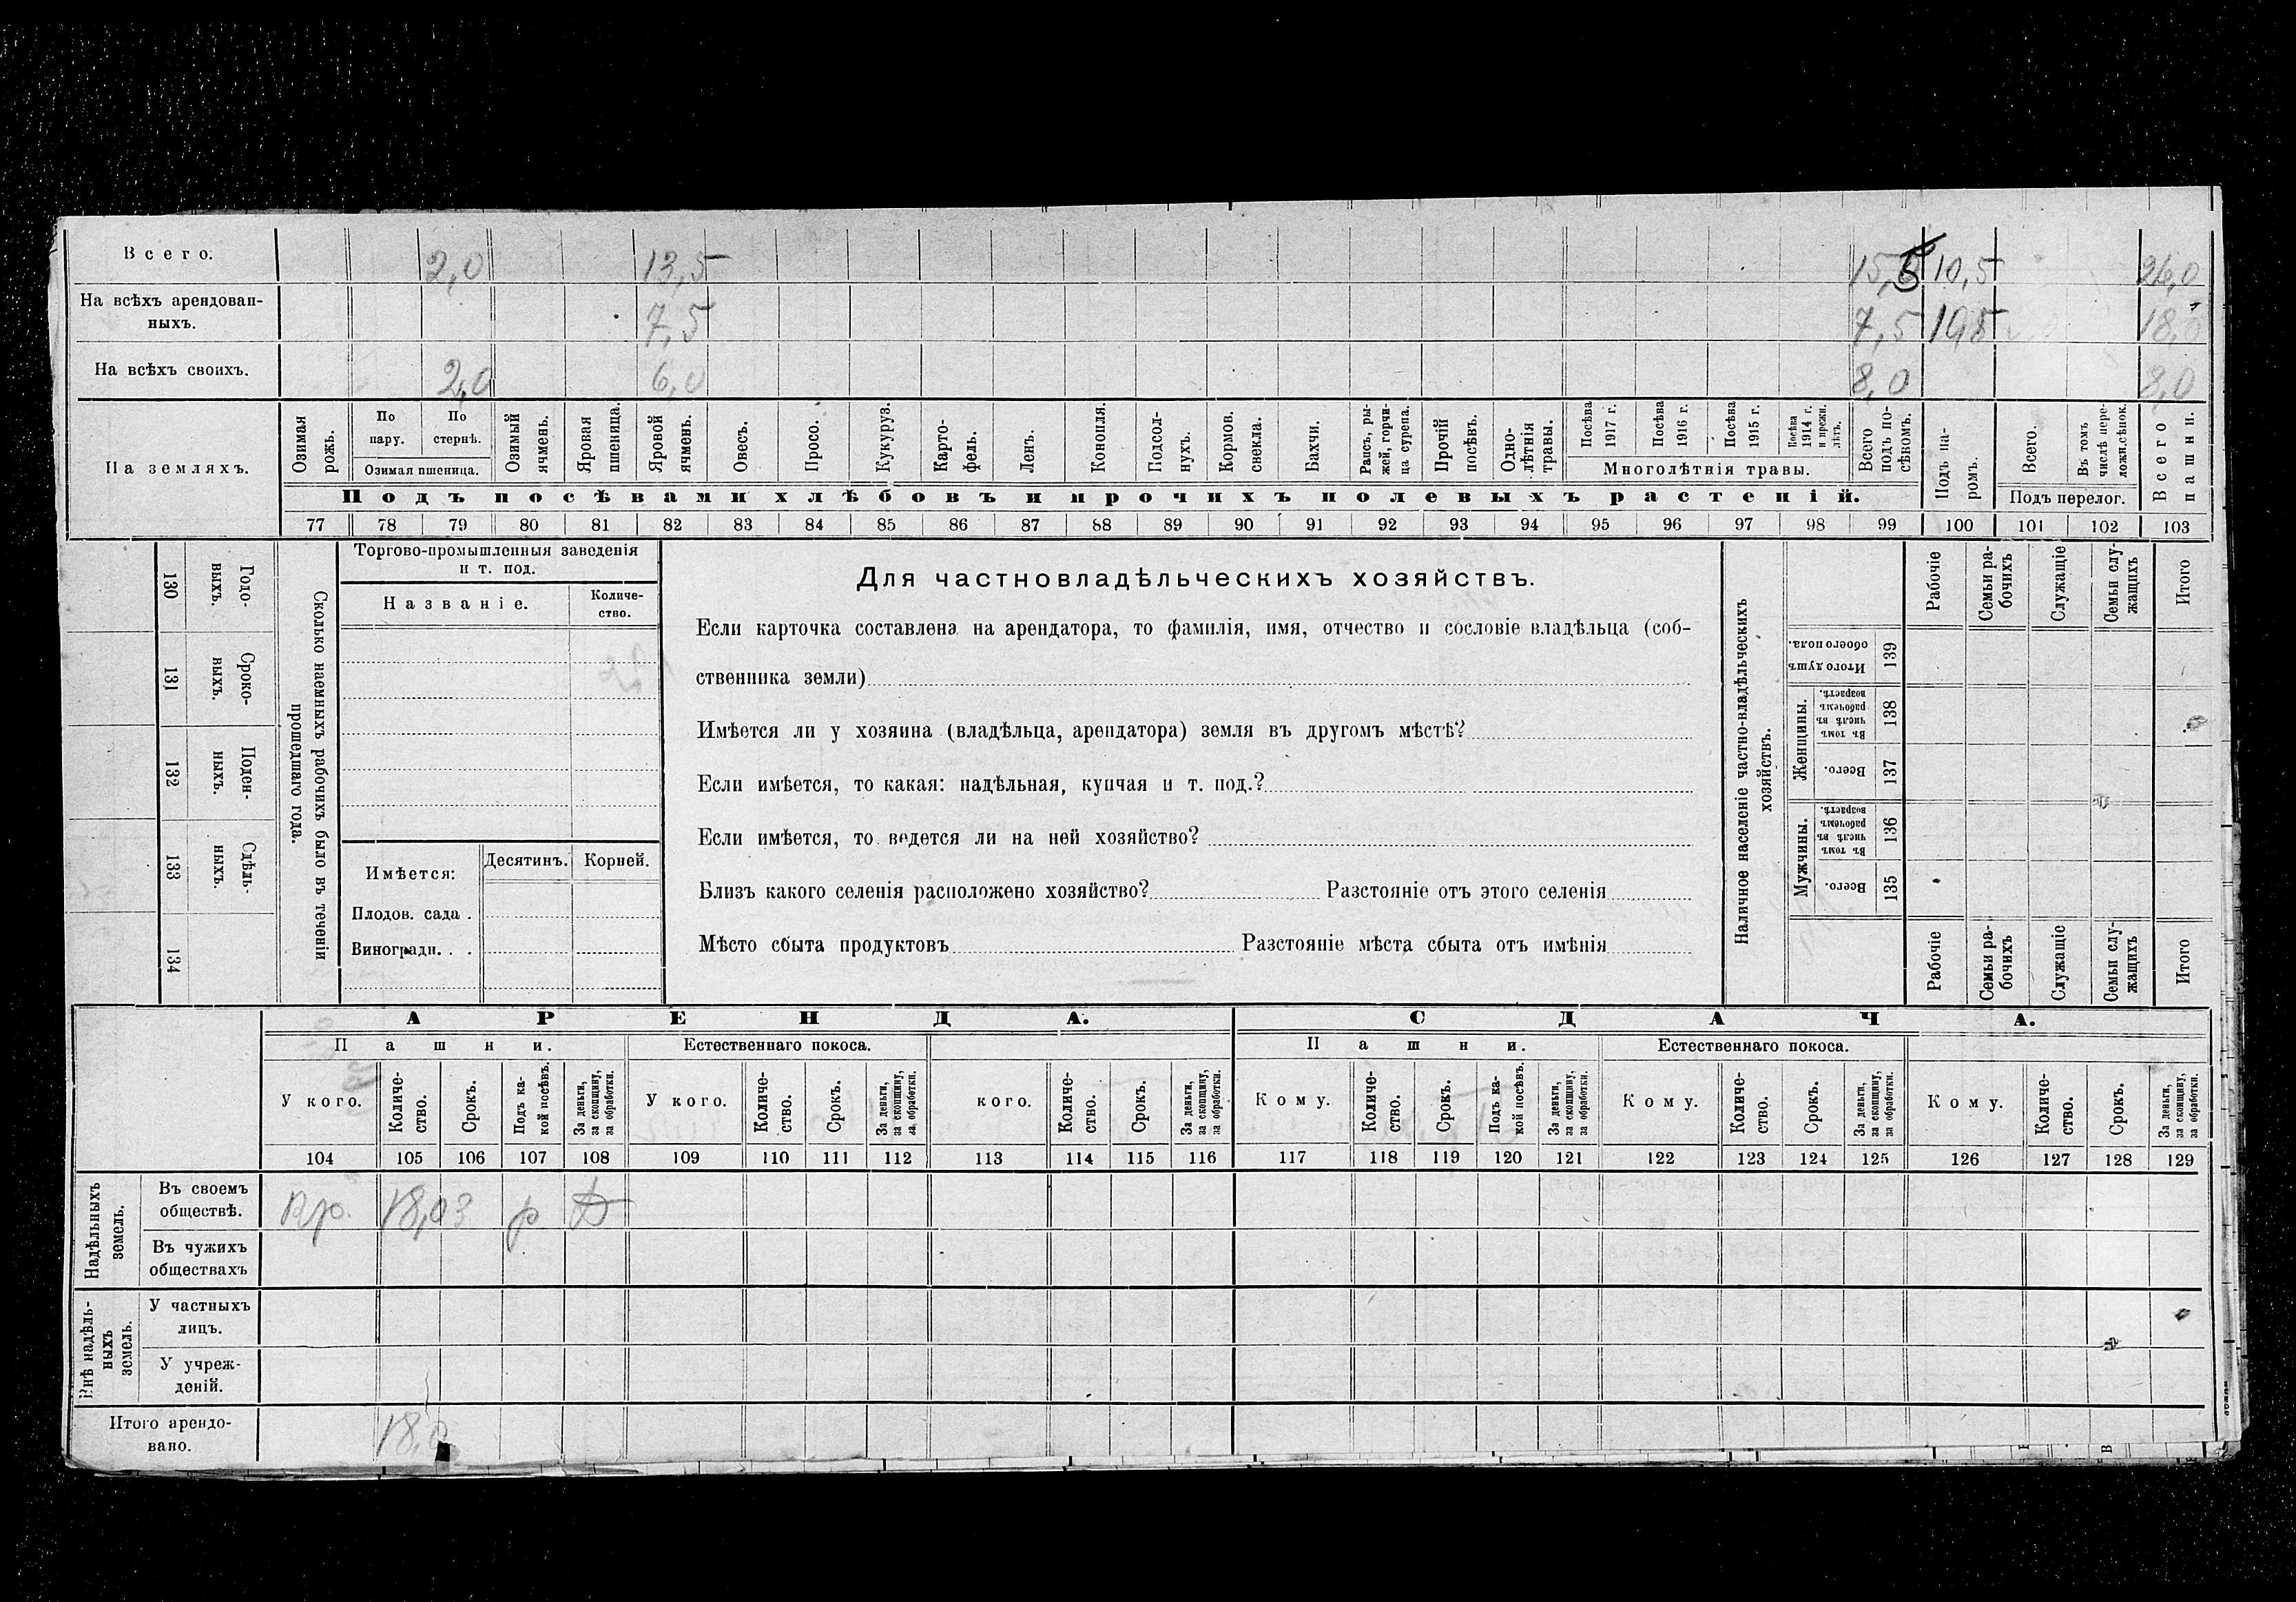 Всего. 2,0 13,5 15,5 10,5 26,0
На всѣхъ арендован-
ныхъ. 7,5 7,5 10,5 18,0
На всѣхъ своихъ. 2,0 6,0 8,0 8,0
На земляхъ.
Озимая рожь.
По пару.
По стернѣ.
Озимая пшеница.
Озимый ячмень.
Яровая пшеница.
Яровой ячмень.
Овесъ.
Просо.
Кукуруз.
Карто-
фель.
Ленъ.
Конопля.
Подсол-
нухъ.
Кормов. свекла.
Бахчи.
Рапсъ, ры-
жей, горчи-
ца сурепа.
Прочій посѣвъ.
Одно-
лѣтнія травы.
Посѣва 1917 г.
Посѣва 1916 г.
Посѣва 1915 г.
Посѣва 1914 г. и прежн. лѣтъ.
Многолѣтнія травы.
Всего подъ по-
сѣвомъ.
Подъ посѣвами хлѣбовъ и прочихъ полевыхъ растеній.
Подъ па-
ромъ.
Всего.
Въ томъ числѣ пере-
ложн.сѣнок.
Подъ перелог.
Всего пашни.
77 78 79 80 81 82 83 84 85 86 87 88 89 90 91 92 93 94 95 96 97 98 99 100 101 102 103
130 Годо-
выхъ.
131 Сроко-
выхъ.
132 Поден-
ныхъ.
133 Сдѣль-
ныхъ.
134
Сколько наемныхъ рабочихъ было въ теченіи
прошедшаго года.
Торгово-промышленныя заведенія
и т. под.
Названіе.
Количе-
ство.
Имѣется:
Десятинъ.
Корней.
Плодов. сада .
Виноградн. . .
Для частновладѣльческихъ хозяйствъ.
Если карточка составлена на арендатора, то фамилія, имя, отчество и сословіе владѣльца (соб-
ственника земли)
Имѣется ли у хозяина (владѣльца, арендатора) земля въ другомъ мѣстѣ?
Если имѣется, то какая: надѣльная, купчая и т. под.?
Если имѣется, то ведется ли на ней хозяйство?
Близъ какого селенія расположено хозяйство? Разстояніе отъ этого селенія
Мѣсто сбыта продуктовъ Разстояніе мѣста сбыта отъ имѣнія
Наличное населеніе частно-владѣльческихъ
хозяйствъ.
Рабочіе
Семьи ра-
бочихъ
Служащіе
Семьи слу-
жащихъ
Итого
Итого душъ
обоего пола.
139
Женщины.
Въ томъ числѣ въ рабочемъ возрастѣ.
138
Всего.
137
Мужчины.
Въ томъ числѣ въ рабочемъ возрастѣ.
136
Всего.
135
Рабочіе
Семьи ра-
бочихъ
Служащіе
Семьи слу-
жащихъ
Итого
АРЕНДА.
СДАЧА.
Пашни.
Естественнаго покоса.
Пашни.
Естественнаго покоса.
У кого.
Количе-
ство.
Срокъ.
Подъ ка-
кой посѣвъ.
За деньги, за скопщину, за обработки.
У кого.
Количе-
ство.
Срокъ.
За деньги, за скопщину, за обработки.
кого.
Количе-
ство.
Срокъ.
За деньги, за скопщину, за обработки.
Кому.
Количе-
ство.
Срокъ.
Подъ ка-
кой посѣвъ.
За деньги, за скопщину, за обработки.
Кому.
Количе-
ство.
Срокъ.
За деньги, за скопщину, за обработки.
Кому.
Количе-
ство.
Срокъ.
За деньги, за скопщину, за обработки.
104 105 106 107 108 109 110 111 112 113 114 115 116 117 118 119 120 121 122 123 124 125 126 127 128 129
Надѣльныхъ
земель.
Въ своемъ
обществѣ.
Кр. 18,0 3 р Д
Въ чужихъ
обществахъ
Внѣ надѣль-
ныхъ
земель.
У частныхъ
лицъ.
У учреж-
деній.
Итого арендо-
вано. 18,0